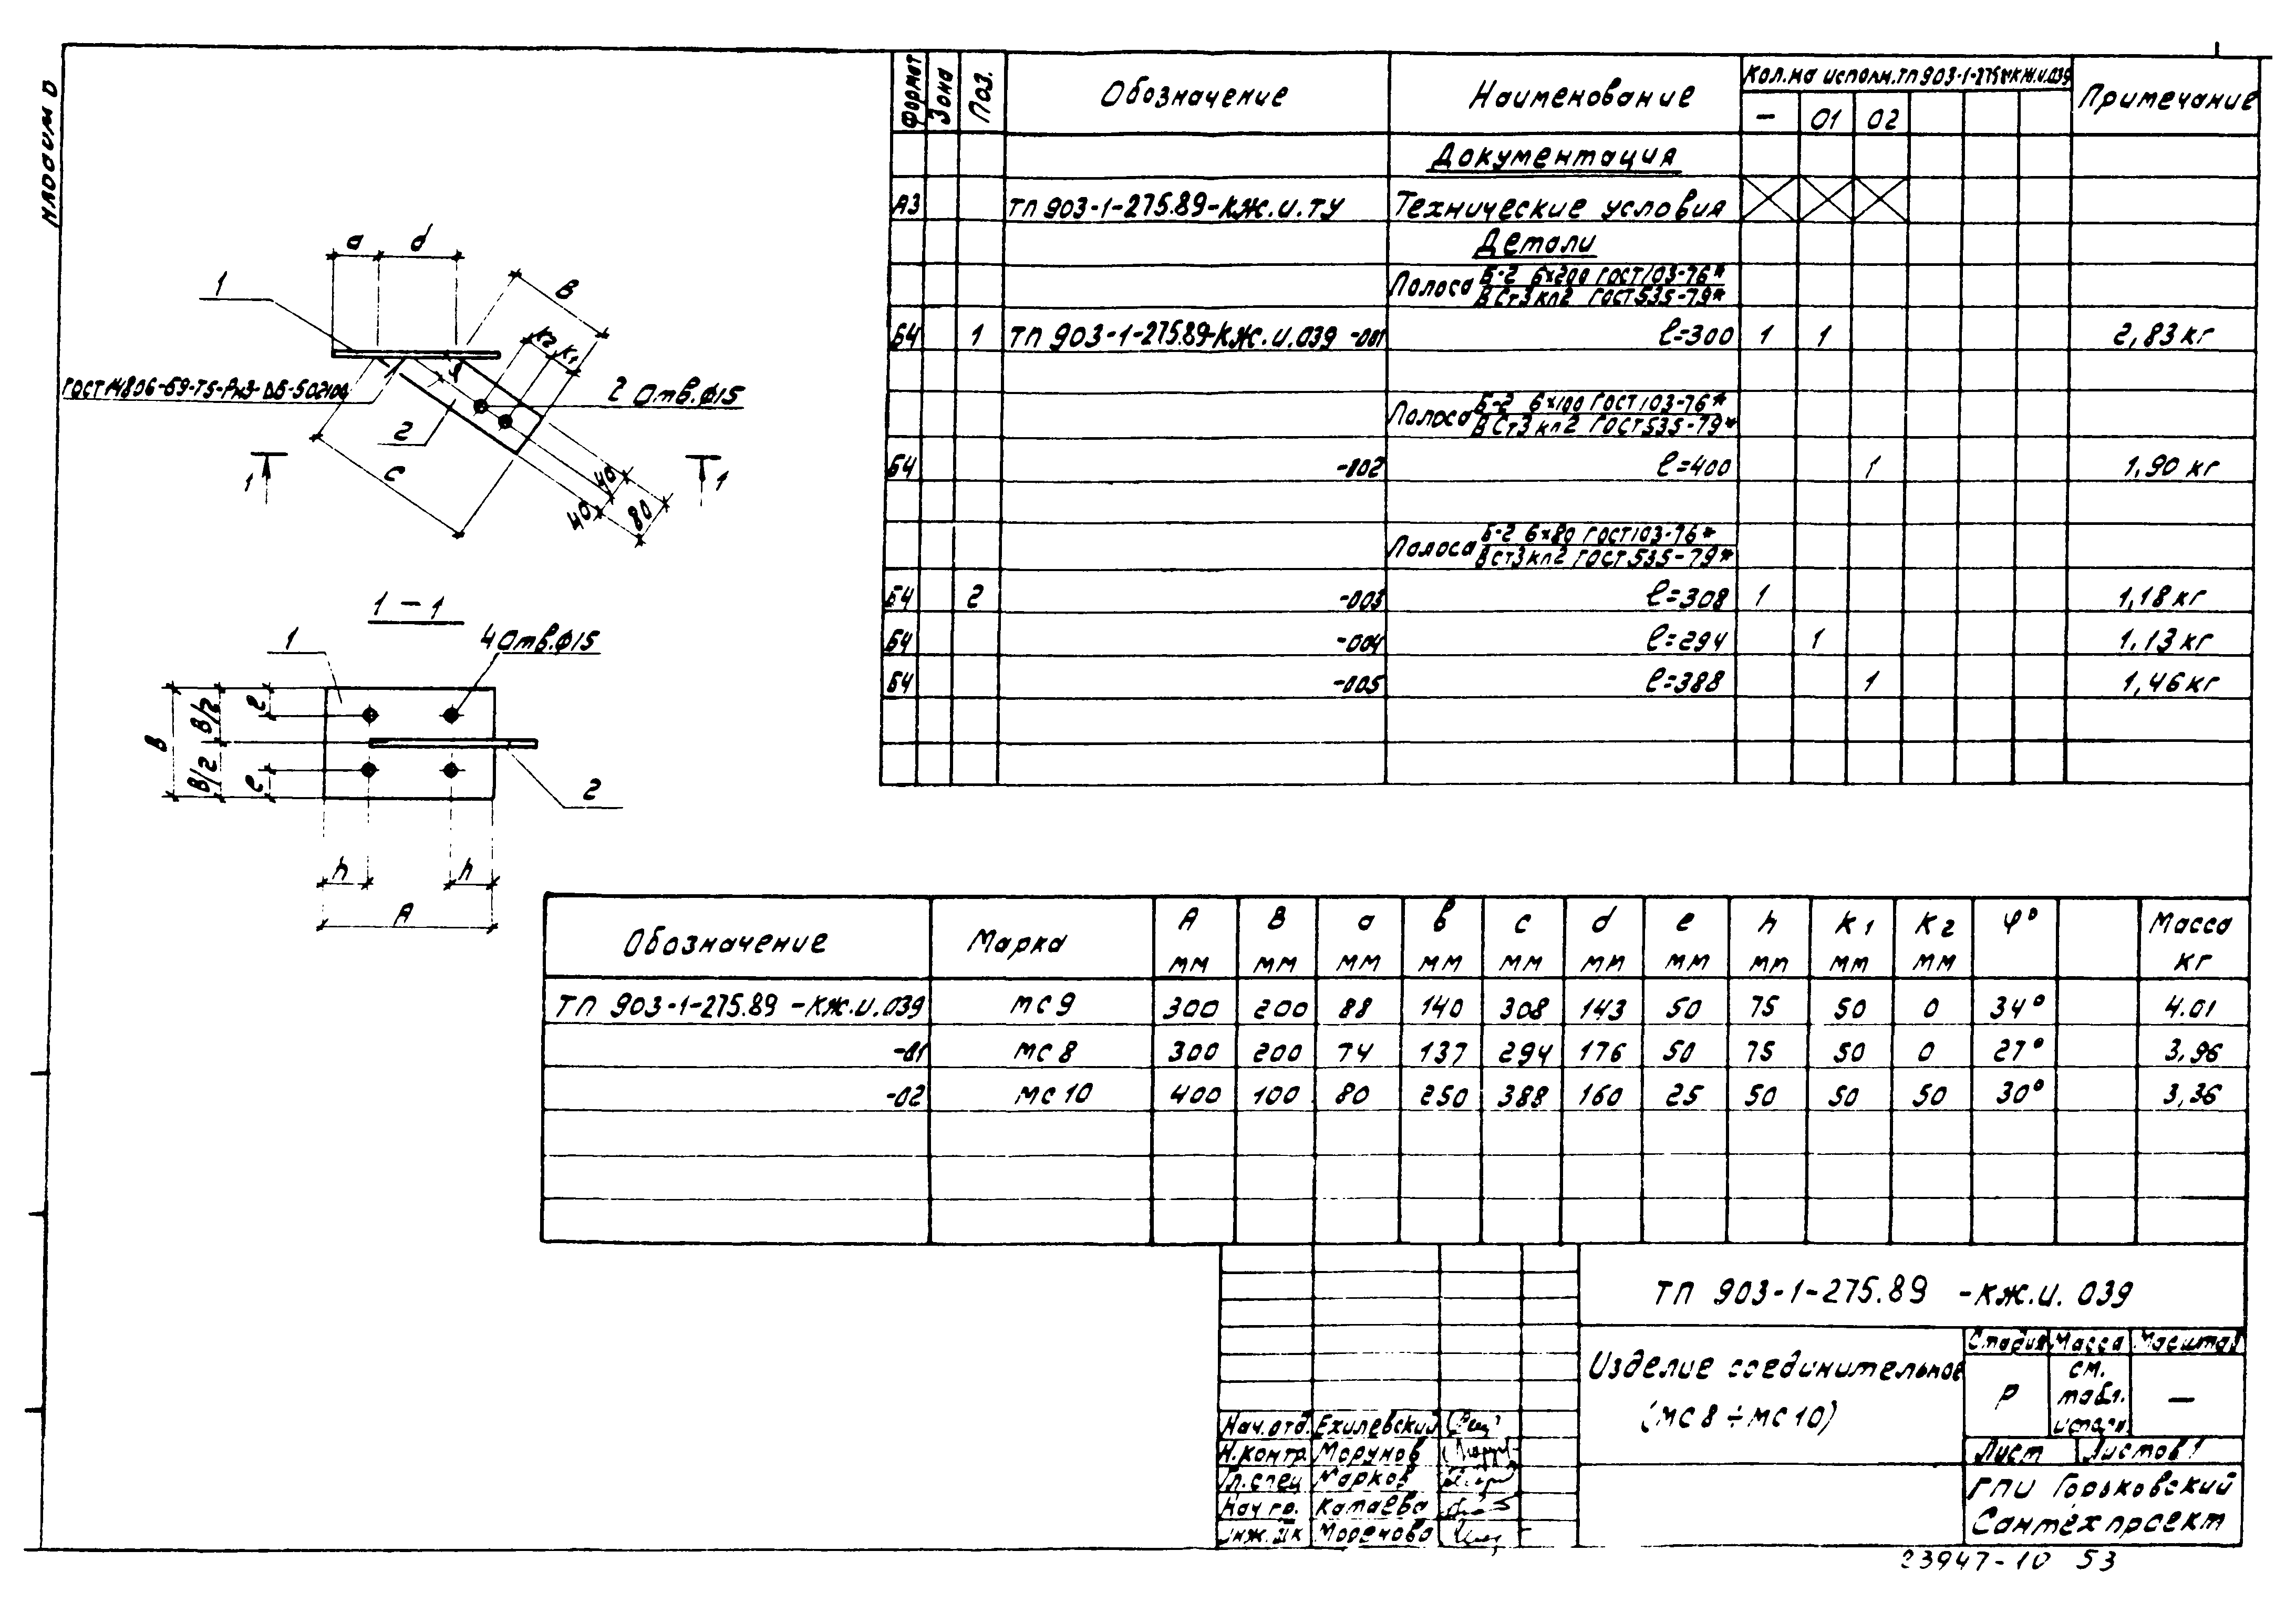 Альбом
a d
1
в
к2 к1
φ
2 отв.ф15
2
с
1 1
40 40 80
1-1
1 4 отв.ф15
В В/2 В/2 е е
2
h h
А
Формат Зона Поз. Обозначение Наименование Кол.на исполн.ТП903-1-275.89КЖ.И.039 Примечание
– 01 02
Документация
А3 ТП 903-1-275.89-КЖ.И.ТУ Технические условия
Детали
Полоса Б-2 6х200 ГОСТ103-76*
ВСт3кп2 ГОСТ535-79*
Б4 1 ТП 903-1-275.89-КЖ.И.039 -001 ℓ=300 1 1 2,83кг
Полоса Б-2 6х100 ГОСТ103-76*
ВСт3кп2 ГОСТ535-79*
Б4 -002 ℓ=400 1 1,90 кг
Полоса Б-2 6х80 ГОСТ103-76*
ВСт3кп2 ГОСТ535-79*
Б4 2 -003 ℓ=308 1 1,18кг
Б4 -004 ℓ=294 1 1,13кг
Б4 -005 ℓ=388 1 1,46кг
Обозначение Марка А мм В мм а мм в мм с мм d мм е мм h мм К1 мм К2 мм φ° Масса кг
ТП 903-1-275.89 -КЖ.И.039 МС9 300 200 88 140 308 143 50 75 50 0 34° 4.01
-01 МС8 300 200 74 137 294 176 50 75 50 0 27° 3,96
-02 МС10 400 100 80 250 388 160 25 50 50 50 30° 3,36
ТП 903-1-275.89 -КЖ.И. 039
Изделие соединительное
(МС8÷МС10)
Стадия Масса Масштаб
Р см. табл. –
Лист Листов 1
ГПИ Горьковский
Сантехпроект
Нач.отд. Ехилевский
Н.контр. Морунов
Гл.спец Марков
Нач гр. Катаева
Инж.IIк Моренова
23947-10 53